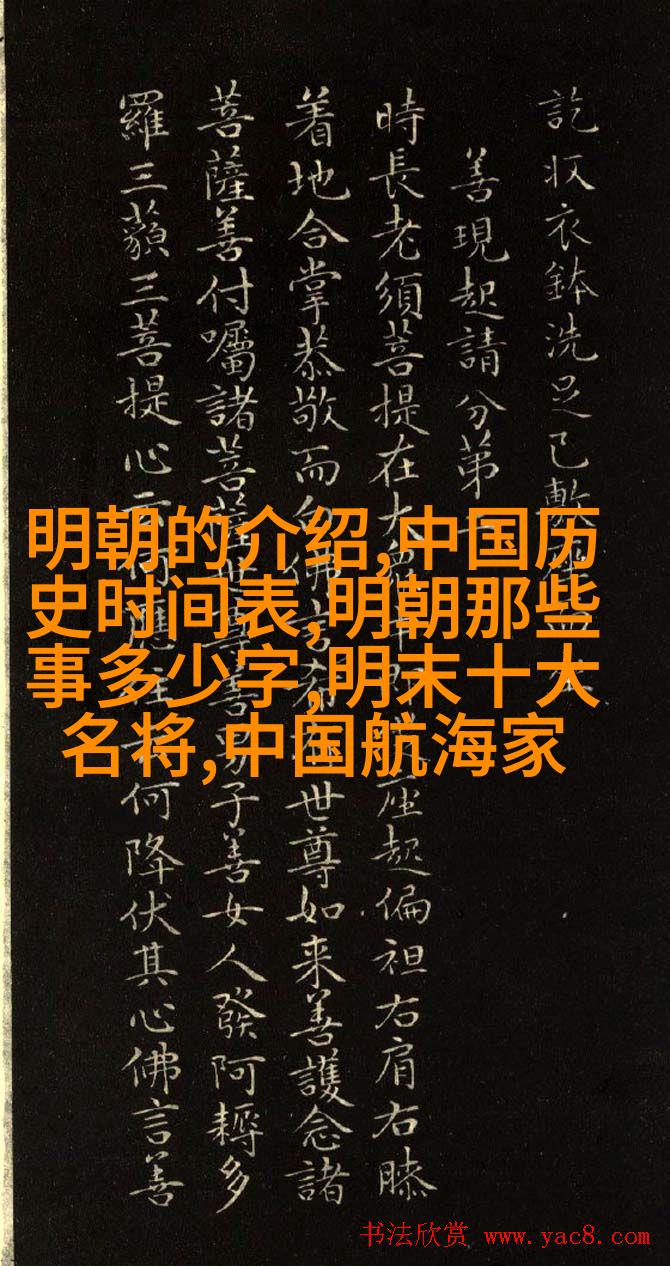 訖収衣鉢洗足已敷
善現起請分第
時長老須菩提在大衆中即座起偏袒右肩右膝
着地合掌恭敬而白佛言希世尊如来善護念諸
菩薩善付囑諸菩薩世尊善男子善女人發阿耨多
羅三藐三菩提心云何應住云何降伏其心佛言善
明朝的介绍,中国历
史时间表,明朝那些
事多少字,明末十大
名将,中国航海家
书法欣赏 www.yac8.com